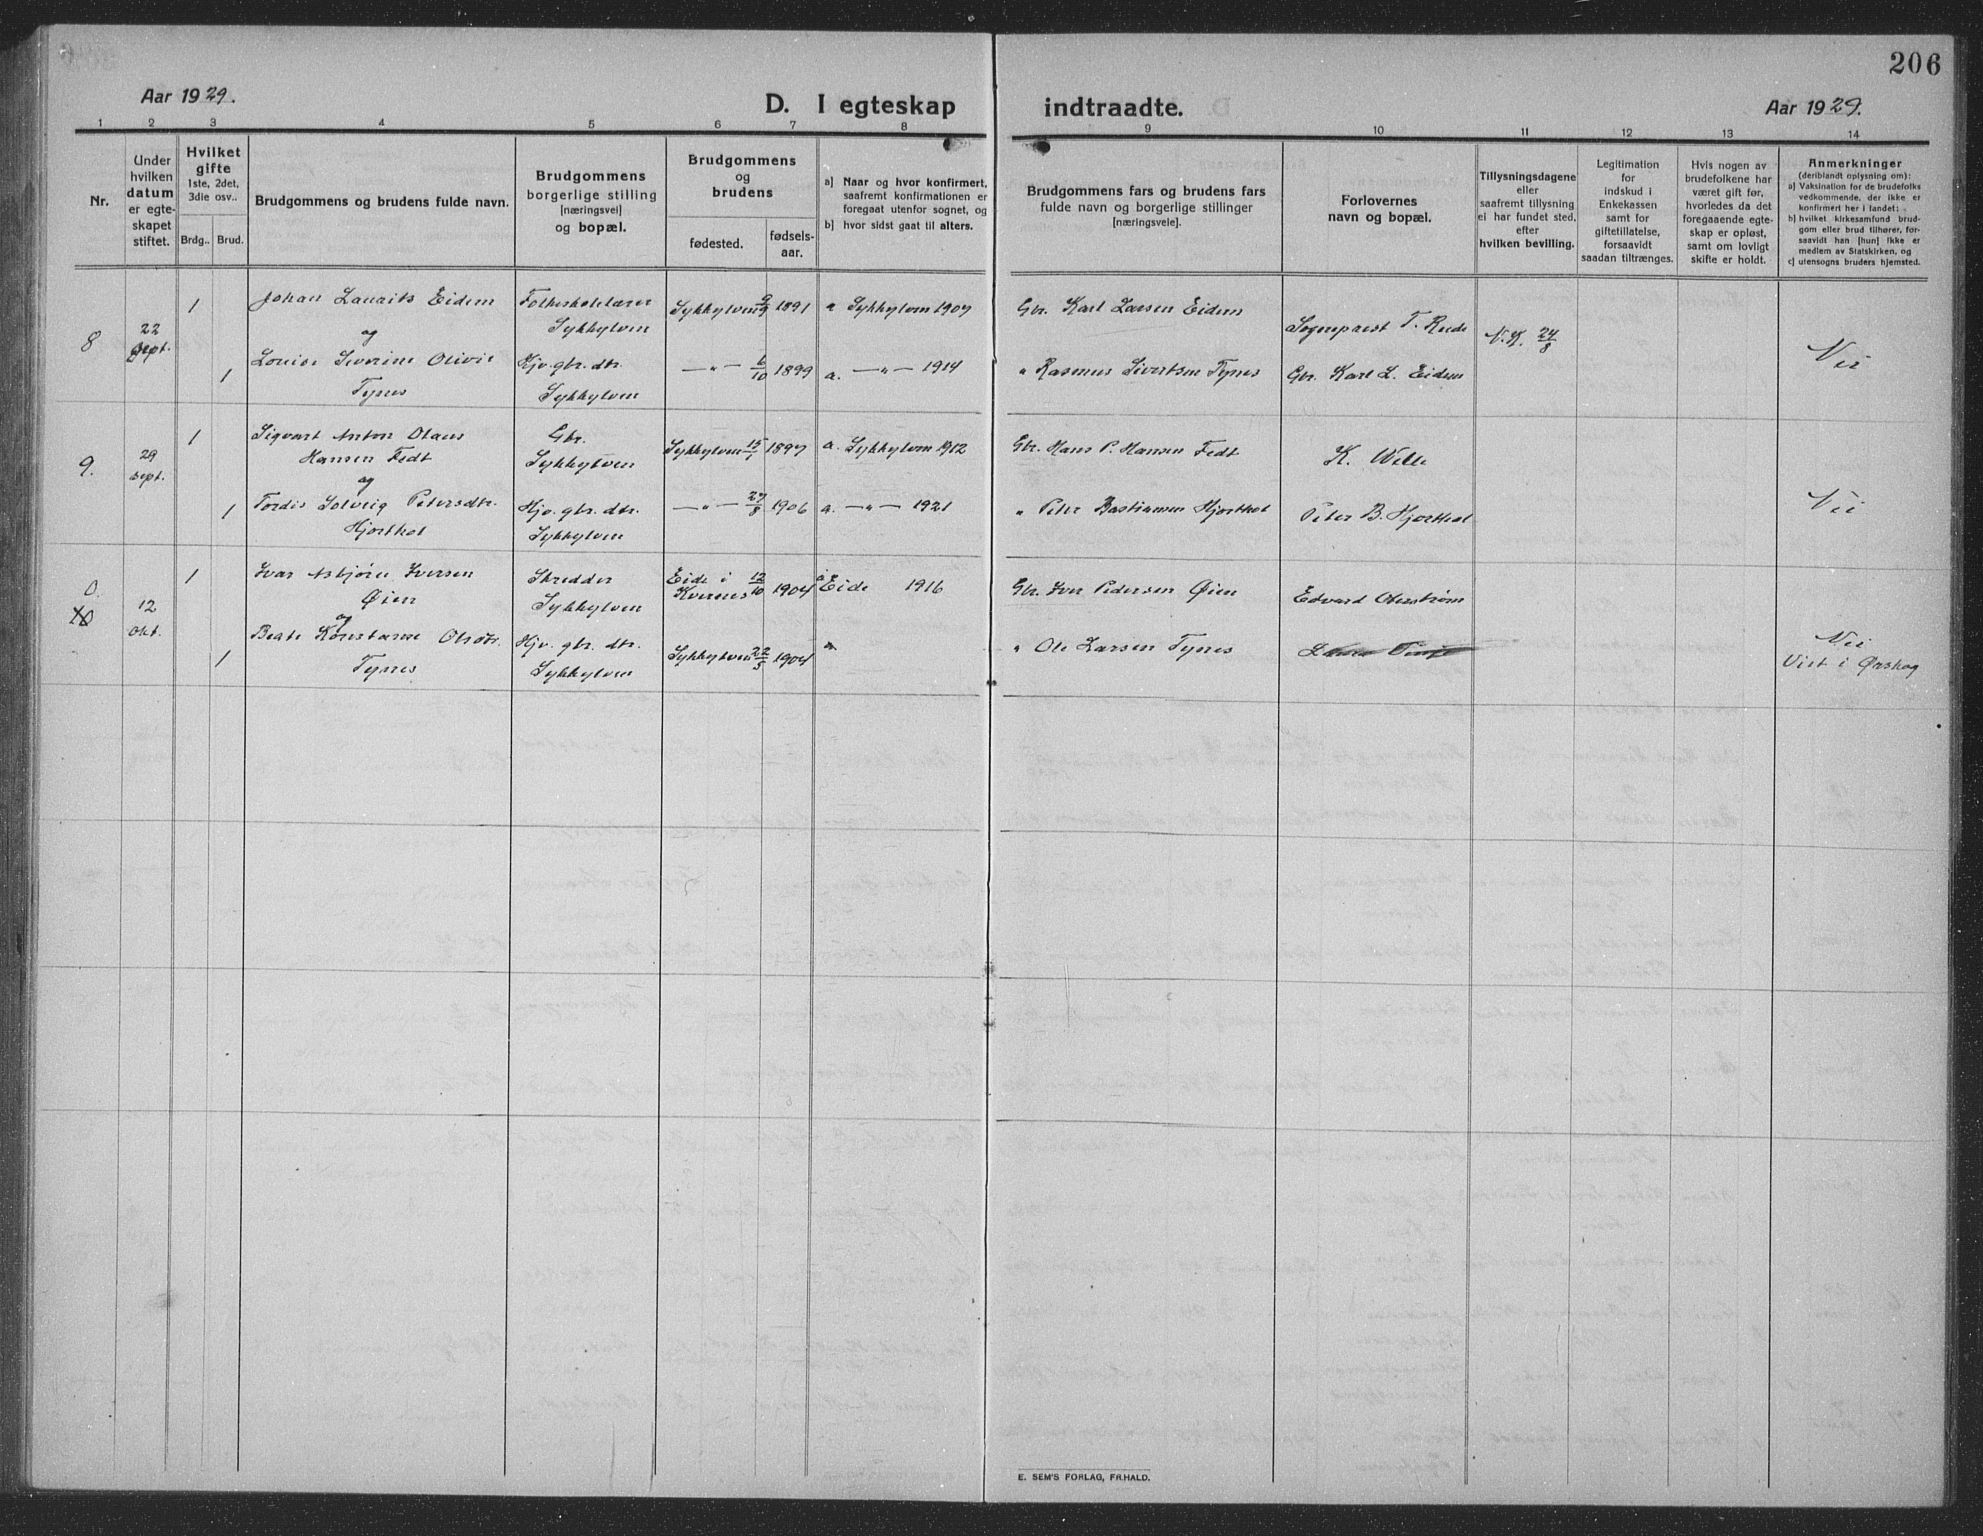 206
Aar 1929.
D. I egteskap indtraadte.
Aar 1929.
1 2 3 4 5 6 7 8 9 10 11 12 13 14
Nr.
Under
hvilken
datum
er egte-
skapet
stiftet.
Hvilket
gifte
1ste, 2det,
3die osv..
Brdg.. Brud.
Brudgommens og brudens fulde navn.
Brudgommens
borgerlige stilling
[næringsvei]
og bopæl.
Brudgommens
og
brudens
fødested.
fødsels-
aar.
a) Naar og hvor konfirmert,
saafremt konfirmationen er
foregaat utenfor sognet, og
b) hvor sidst gaat til alters.
Brudgommens fars og brudens fars
fulde navn og borgerlige stillinger
[næringsveie].
Forlovernes
navn og bopæl.
Tillysningsdagene
eller
saafremt tillysning
ei har fundet sted,
efter
hvilken bevilling.
Legitimation
for
indskud i
Enkekassen
samt for
giftetillatelse,
forsaavidt
saadan tiltrænges.
Hvis nogen av
brudefolkene har
været gift før,
hvorledes da det
foregaaende egte-
skap er opløst,
samt om lovligt
skifte er holdt.
Anmerkninger
(deriblandt oplysning om):
a) Vaksination for de brudefolks
vedkommende, der ikke er
konfirmert her i landet;
b) hvilket kirkesamfund brud-
gom eller brud tilhører, for-
saavidt han [hun] ikke er
medlem av Statskirken, og
c) utensogns bruders hjemsted.
8 22 Sept. 1 Johan Laurits Eidem Folkeskolelærer Sykkylven Sykkylven 9/9 1891 a Sykkylven 1907 Gbr. Karl Larsen Eidem Sogneprest T. Rede N.K. 24/8 Nei
og
1 Louise Severine Olivie Tynes Hjv. gbr. dtr. Sykkylven —"— 6/10 1899 a. —"— 1914 " Rasmus Sivertsen Tynes Gbr. Karl L. Eidem
9. 29 Sept. 1 Sigvart Anton Olaus Hansen Fedt Gbr. Sykkylven Sykkylven 15/1 1897 a. Sykkylven 1912 Gbr. Hans P. Hansen Fedt K. Welle Nei
og
1 Tordis Solveig Petersdtr. Hjorthol Hjv. gbr. dtr. Sykkylven —"— 27/8 1906 a. —"— 1921 " Peter Bastiansen Hjorthol Peter B. Hjorthol
0
10 12 Okt. 1 Ivar Asbjørn Iversen Øien Skredder Sykkylven Eide i Kvernes 12/10 1904 a Eide 1916 Gbr. Iver Pedersen Øien Edvard Oterstrøm
og
1 Beate Konstanse Olsdtr. Tynes Hjv. gbr. dtr. Sykkylven Sykkylven 22/5 1904 a " Ole Larsen Tynes Nei
Viet i Ørskog
E. SEM'S FORLAG, FR.HALD.